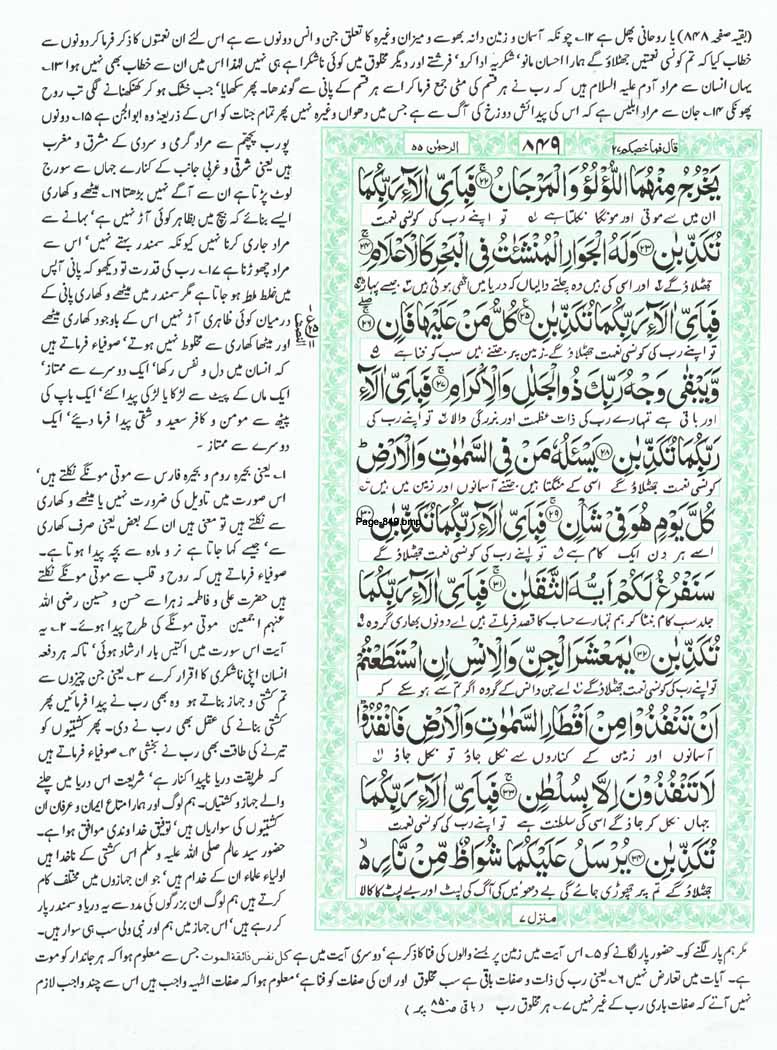 (بقیہ صفحہ ۸۴۸) یا روحانی پھل ہے ۱۲۔ چونکہ آسمان و زمین دانہ بھوسے و میزان وغیرہ کا تعلق جن و انس دونوں سے ہے اس لئے ان نعمتوں کا ذکر فرما کر دونوں سے
خطاب کیا کہ تم کونسی نعمتیں جھٹلاؤ گے ہمارا احسان مانو' شکریہ ادا کرو' فرشتے اور دیگر مخلوق میں کوئی ناشکرا ہے ہی نہیں لہذا اس میں ان سے خطاب بھی نہیں ہوا ۱۳۔
یہاں انسان سے مراد آدم علیہ السلام ہیں کہ رب نے ہر قسم کی مٹی جمع فرما کر اسے ہر قسم کے پانی سے گوندھا۔ پھر سکھایا' جب خشک ہو کر کھنکھنانے لگی تب روح
پھونکی ۱۴۔ جان سے مراد ابلیس ہے کہ اس کی پیدائش دوزخ کی آگ سے ہے جس میں دھواں وغیرہ نہیں پھر تمام جنات کو اس کے ذریعہ وہ ابوالجن ہے ۱۵۔ دونوں
پورب پچھم سے مراد گرمی و سردی کے مشرق و مغرب
ہیں یعنی شرقی و غربی جانب کے کنارے جہاں سے سورج
لوٹ پڑتا ہے ان سے آگے نہیں بڑھتا ۱۶۔ میٹھے و کھاری
ایسے بنائے کہ بیچ میں بظاہر کوئی آڑ نہیں ہے' بہانے سے
مراد جاری کرنا نہیں کیونکہ سمندر بہتے نہیں' اس سے
مراد چھوڑنا ہے ۱۷۔ رب کی قدرت تو دیکھو کہ پانی آپس
میں غلط ملط ہو جاتا ہے مگر سمندر میں میٹھے و کھاری پانی کے
درمیان کوئی ظاہری آڑ نہیں اس کے باوجود کھاری میٹھے
اور میٹھا کھاری سے مخلوط نہیں ہوتے' صوفیاء فرماتے ہیں
کہ انسان میں دل و نفس رکھا' ایک دوسرے سے ممتاز'
ایک ماں کے پیٹ سے لڑکا یا لڑکی پیدا کئے' ایک باپ کی
پیٹھ سے مومن و کافر سعید و شقی پیدا فرما دیئے' ایک
دوسرے سے ممتاز ۔
۱۔ یعنی بحیرہ روم و بحیرہ فارس سے موتی مونگے نکلتے ہیں'
اس صورت میں تاویل کی ضرورت نہیں یا میٹھے و کھاری
سے نکلتے ہیں تو معنی ہیں ان کے بعض یعنی صرف کھاری
سے' جیسے کہا جاتا ہے نر و مادہ سے بچہ پیدا ہوتا ہے۔
صوفیاء فرماتے ہیں کہ روح و قلب سے موتی مونگے نکلتے
ہیں حضرت علی و فاطمہ زہرا سے حسن و حسین رضی اللہ
عنہم اجمعین موتی مونگے کی طرح پیدا ہوئے۔ ۲۔ یہ
آیت اس سورت میں اکتیس بار ارشاد ہوئی' تاکہ ہر دفعہ
انسان اپنی ناشکری کا اقرار کرے ۳۔ یعنی جن چیزوں سے
تم کشتی و جہاز بناتے ہو وہ بھی رب نے پیدا فرمائیں پھر
کشتی بنانے کی عقل بھی رب نے دی۔ پھر کشتیوں کو
تیرنے کی طاقت بھی رب نے بخشی ۴۔ صوفیاء فرماتے ہیں
کہ طریقت دریا ناپیدا کنار ہے' شریعت اس دریا میں چلنے
والے جہاز و کشتیاں۔ ہم لوگ اور ہمارا متاع ایمان و عرفان ان
کشتیوں کی سواریاں ہیں' توفیق خداوندی موافق ہوا ہے۔
حضور سید عالم صلی اللہ علیہ وسلم اس کشتی کے ناخدا ہیں
اولیاء علماء ان کے خدام ہیں' جو ان جہازوں میں مختلف کام
کرتے ہیں ہم لوگ ان بزرگوں کی مدد سے یہ دریا و سمندر پار
کر رہے ہیں' اس جہاز میں ہم اور نبی ولی سب ہی سوار ہیں۔
قال فما خطبکم ۲۷
۸۴۹
الرحمٰن ۵۵
يَخْرُجُ مِنْهُمَا اللُّؤْلُؤُ وَالْمَرْجَانُ ﴿۲۲﴾ فَبِاَيِّ اٰلَآءِ رَبِّكُمَا
ان میں سے موتی اور مونگا نکلتا ہے تو اپنے رب کی کونسی نعمت
تُكَذِّبٰنِ ﴿۲۳﴾ وَلَهُ الْجَوَارِ الْمُنْشَئٰتُ فِي الْبَحْرِ كَالْاَعْلَامِ ﴿۲۴﴾
جھٹلاؤ گے اور اسی کی ہیں وہ چلنے والیاں کہ دریا میں اٹھی ہوئی ہیں جیسے پہاڑ
فَبِاَيِّ اٰلَآءِ رَبِّكُمَا تُكَذِّبٰنِ ﴿۲۵﴾ كُلُّ مَنْ عَلَيْهَا فَانٍ ﴿۲۶﴾
تو اپنے رب کی کونسی نعمت جھٹلاؤ گے۔ زمین پر جتنے ہیں سب کو فنا ہے
وَّيَبْقٰى وَجْهُ رَبِّكَ ذُو الْجَلٰلِ وَالْاِكْرَامِ ﴿۲۷﴾ فَبِاَيِّ اٰلَآءِ
اور باقی ہے تمہارے رب کی ذات عظمت اور بزرگی والا تو اپنے رب کی
رَبِّكُمَا تُكَذِّبٰنِ ﴿۲۸﴾ يَسْـَٔلُهٗ مَنْ فِي السَّمٰوٰتِ وَالْاَرْضِ
کونسی نعمت جھٹلاؤ گے اسی کے منگتا ہیں جتنے آسمانوں اور زمین میں ہیں
كُلَّ يَوْمٍ هُوَ فِيْ شَاْنٍ ﴿۲۹﴾ فَبِاَيِّ اٰلَآءِ رَبِّكُمَا تُكَذِّبٰنِ ﴿۳۰﴾
Page-849.bmp
اسے ہر دن ایک کام ہے تو اپنے رب کی کونسی نعمت جھٹلاؤ گے
سَنَفْرُغُ لَكُمْ اَيُّهَ الثَّقَلٰنِ ﴿۳۱﴾ فَبِاَيِّ اٰلَآءِ رَبِّكُمَا
جلد سب کام نبٹا کر ہم تمہارے حساب کا قصد فرماتے ہیں اے دونوں بھاری گروہ
تُكَذِّبٰنِ ﴿۳۲﴾ يٰمَعْشَرَ الْجِنِّ وَالْاِنْسِ اِنِ اسْتَطَعْتُمْ
تو اپنے رب کی کونسی نعمت جھٹلاؤ گے اے جن و انس کے گروہ اگر تم سے ہو سکے کہ
اَنْ تَنْفُذُوْا مِنْ اَقْطَارِ السَّمٰوٰتِ وَالْاَرْضِ فَانْفُذُوْا
آسمانوں اور زمین کے کناروں سے نکل جاؤ تو نکل جاؤ
لَا تَنْفُذُوْنَ اِلَّا بِسُلْطٰنٍ ﴿۳۳﴾ فَبِاَيِّ اٰلَآءِ رَبِّكُمَا
جہاں نکل کر جاؤ گے اسی کی سلطنت ہے تو اپنے رب کی کونسی نعمت
تُكَذِّبٰنِ ﴿۳۴﴾ يُرْسَلُ عَلَيْكُمَا شُوَاظٌ مِّنْ نَّارٍ
جھٹلاؤ گے تم پر چھوڑی جائے گی بے دھوئیں کی آگ کی لپٹ اور بے لپٹ کا کالا
منزل ۷
مگر ہم پار لگنے کو۔ حضور پار لگانے کو ۵۔ اس آیت میں زمین پر بسنے والوں کی فنا کا ذکر ہے' دوسری آیت میں ہے کل نفس ذائقۃ الموت جس سے معلوم ہوا کہ ہر جاندار کو موت
ہے۔ آیات میں تعارض نہیں ۶۔ یعنی رب کی ذات و صفات باقی ہے سب مخلوق اور ان کی صفات کو فنا ہے' معلوم ہوا کہ صفات الٰہیہ واجب ہیں اس سے چند واجب لازم
نہیں آتے کہ صفات باری رب کے غیر نہیں ۷۔ ہر مخلوق رب (باقی صفحہ ۸۵۰ پر)